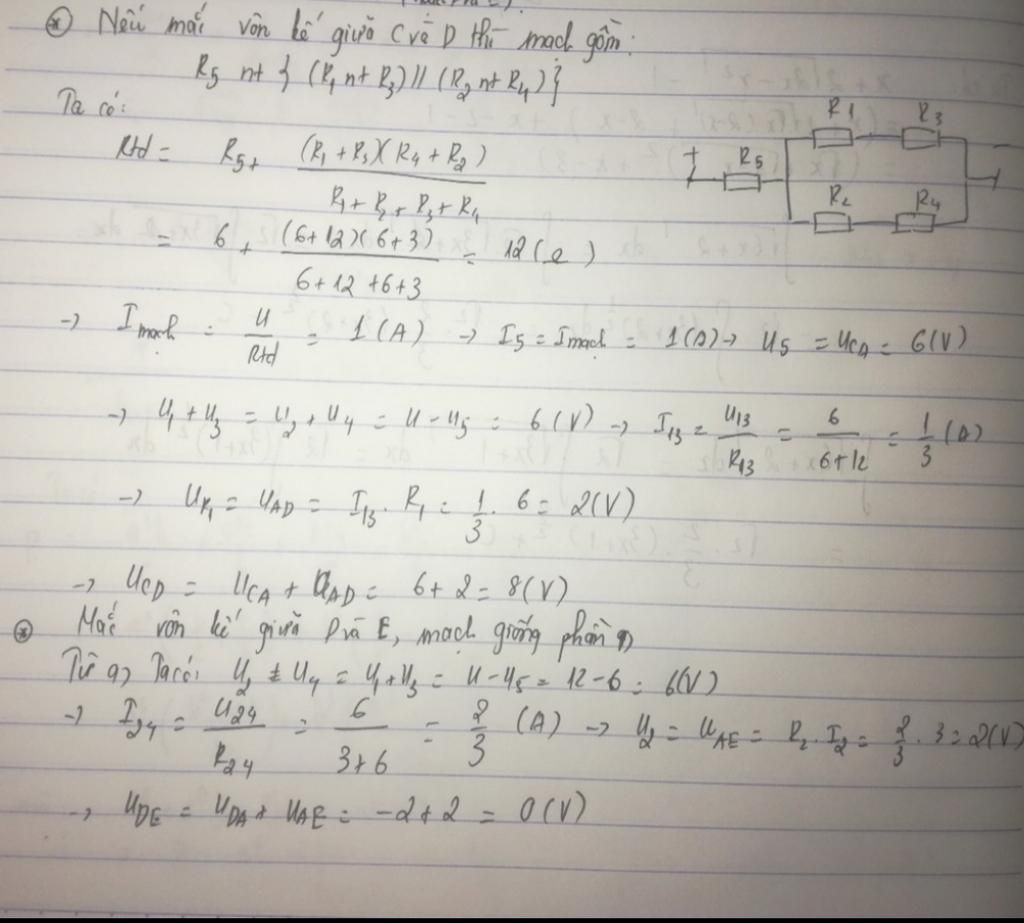 ⊛ Nếu mắc vôn kế giữa C và D thì mạch gồm:
R5 nt { (R1 nt R3) // (R2 nt R4) }
Ta có:
Rtd = R5 + (R1 + R3)(R4 + R2) / R1 + R2 + R3 + R4
+ R5 R1 R3 -
R2 R4
= 6 + (6+12)(6+3) / 6+12+6+3 = 12 (Ω)
→ Imạch = U / Rtd = 1 (A) → I5 = Imạch = 1 (A) → U5 = UCA = 6 (V)
→ U1 + U3 = U2 + U4 = U - U5 = 6 (V) → I13 = U13 / R13 = 6 / 6+12 = 1/3 (A)
→ UR1 = UAD = I13 . R1 = 1/3 . 6 = 2 (V)
→ UCD = UCA + UAD = 6 + 2 = 8 (V)
⊛ Mắc vôn kế giữa D và E, mạch giống phần
Từ a) Ta có: U2 + U4 = U1 + U3 = U - U5 = 12 - 6 = 6(V)
→ I24 = U24 / R24 = 6 / 3+6 = 2/3 (A) → U2 = UAE = R2 . I2 = 2/3 . 3 = 2(V)
→ UDE = UDA + UAE = -2 + 2 = 0 (V)